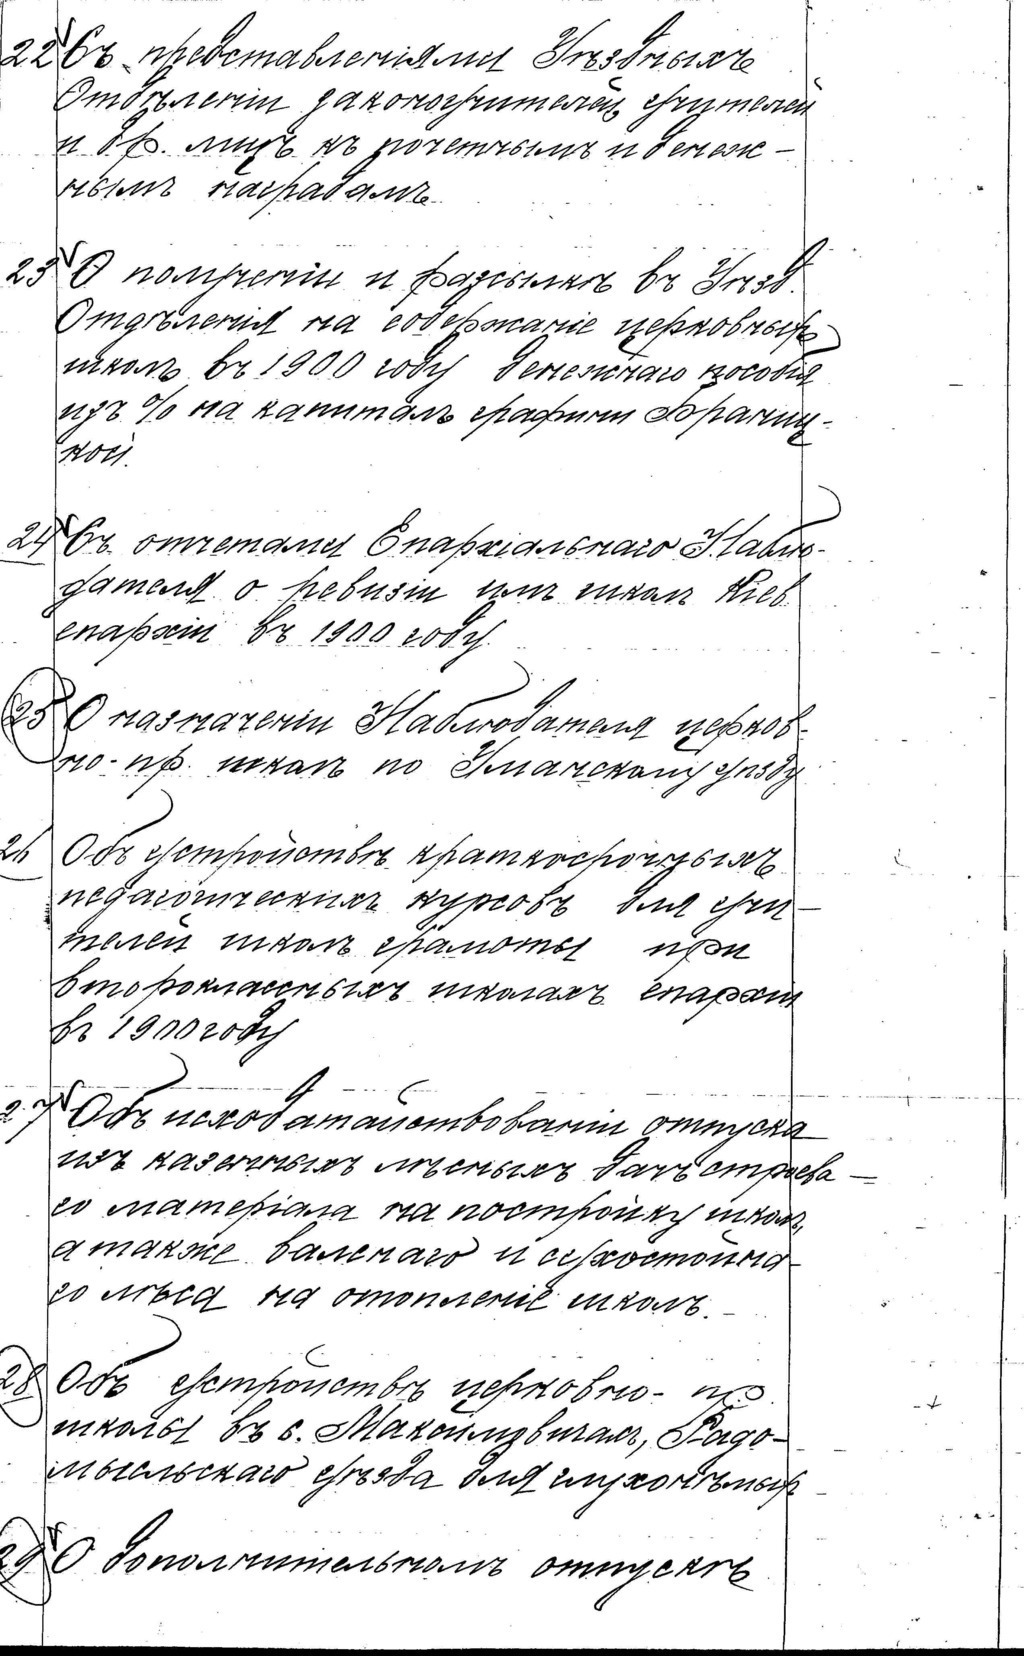 22 Съ представленіями Уѣздныхъ
Отдѣленіи законоучителей, учителей
и др. лицъ къ почетнымъ и денеж-
нымъ наградамъ
23 О полученіи и разсылкѣ въ Уѣзд.
Отдѣленія на содержаніе церковных
школъ въ 1900 году денежнаго пособія
изъ % на капиталъ графини Браниц-
кой.
24 Съ отчетами Епархіальнаго Наблю-
дателя о ревизіи имъ школъ Кіев.
епархіи въ 1900 году.
25 О назначеніи Наблюдателя церков-
но-пр. школъ по Уманскому уѣзду
26 Объ устройствѣ краткосрочныхъ
педагогическихъ курсовъ для учи-
телей школъ грамоты при
второклассныхъ школахъ епархіи
въ 1900 году
27 Объ исходатайствованіи отпуска
изъ казенныхъ лѣсныхъ дачъ строева-
го матеріала на постройку школъ,
а также валенаго и сухостойна-
го лѣса на отопленіе школъ.
28 Объ устройствѣ церковно-пр.
школы въ с. Макаймовичахъ, Радо-
мысльскаго уѣзда для глухонѣмых
29 О дополнительномъ отпускѣ